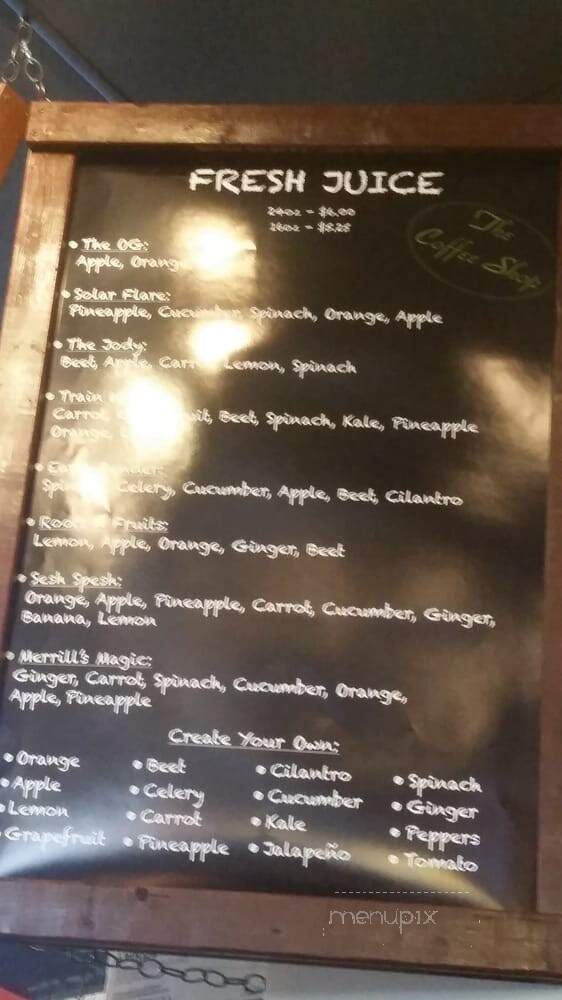 FRESH JUICE
24oz - $6.00
The
Coffee Shop
• The OG:
Apple, Orange
• Solar Flare:
Pineapple, Cucumber, Spinach, Orange, Apple
• The Jody:
Beet, Apple, Carrot, Lemon, Spinach
• Train
Carrot, Beet, Spinach, Kale, Pineapple
Orange,
Celery, Cucumber, Apple, Beet, Cilantro
• Fruits:
Lemon, Apple, Orange, Ginger, Beet
• Sesh Spesh:
Orange, Apple, Pineapple, Carrot, Cucumber, Ginger,
Banana, Lemon
• Merrill's Magic:
Ginger, Carrot, Spinach, Cucumber, Orange,
Apple, Pineapple
Create Your Own:
• Orange • Beet • Cilantro • Spinach
• Apple • Celery • Cucumber • Ginger
• Lemon • Carrot • Kale • Peppers
• Grapefruit • Pineapple • Jalapeño • Tomato
menupix